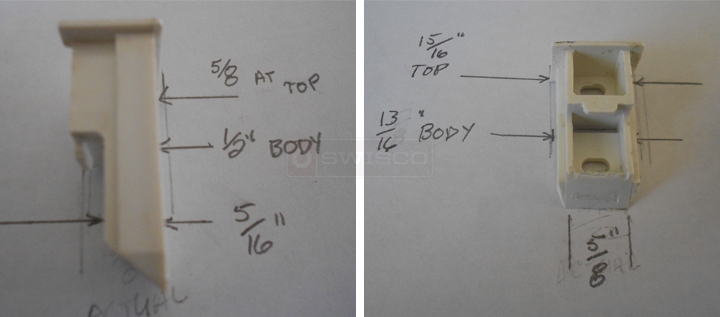 5/8 AT TOP
1/2" BODY
5/16"
ACTUAL
SWISCO
15/16"
TOP
13/16" BODY
5/8"
ACTUAL